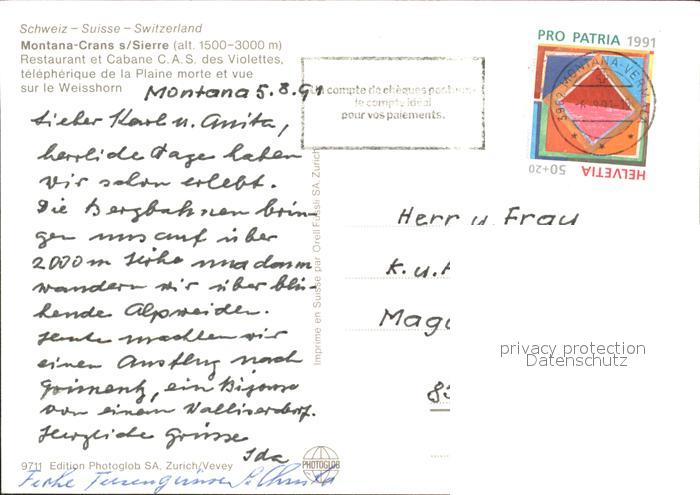 Schweiz – Suisse – Switzerland
Montana-Crans s/Sierre (alt. 1500–3000 m)
Restaurant et Cabane C.A.S. des Violettes,
téléphérique de la Plaine morte et vue
sur le Weisshorn
Montana 5.8.91
Lieber Karl u. Anita,
herrliche Tage haben
wir schon erlebt.
Die Bergbahnen brin-
gen uns auf über
2000 m Höhe und dann
wandern wir über blü-
hende Alpweiden.
Heute machten wir
einen Ausflug nach
Grimentz, ein Bijou
von einem Walliserdorf.
Herzliche Grüsse
Ida
9711 Edition Photoglob SA, Zurich/Vevey
PHOTOGLOB
Imprimé en Suisse par Orell Füssli SA, Zurich
compte de chèques
le compte idéal
pour vos paiements.
PRO PATRIA 1991
3962 MONTANA-VERMALA
50+20
HELVETIA
Herr u. Frau
K. u. A
Mag
privacy protection
Datenschutz